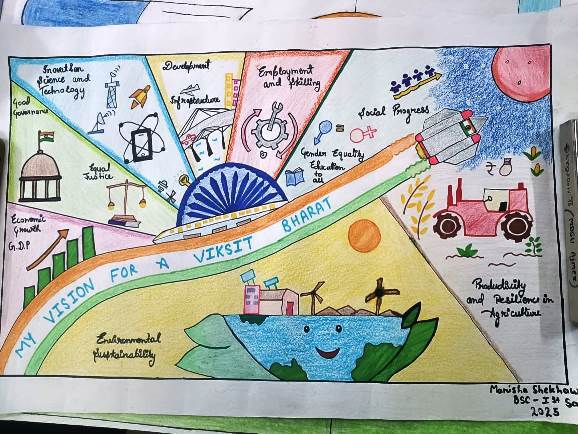 Inovation
Science and
Technology
Development
Infrastructure
Employment
and Skilling
Social Progress
Gender Equality
Education
to
all
Good
Governance
Equal
Justice
Economic
Growth
G.D.P
MY VISION FOR A VIKSIT BHARAT
Environmental
Sustainability
Productivity
and Resilience in
Agriculture
Manisha Shekhaw
BSC - I st
2025